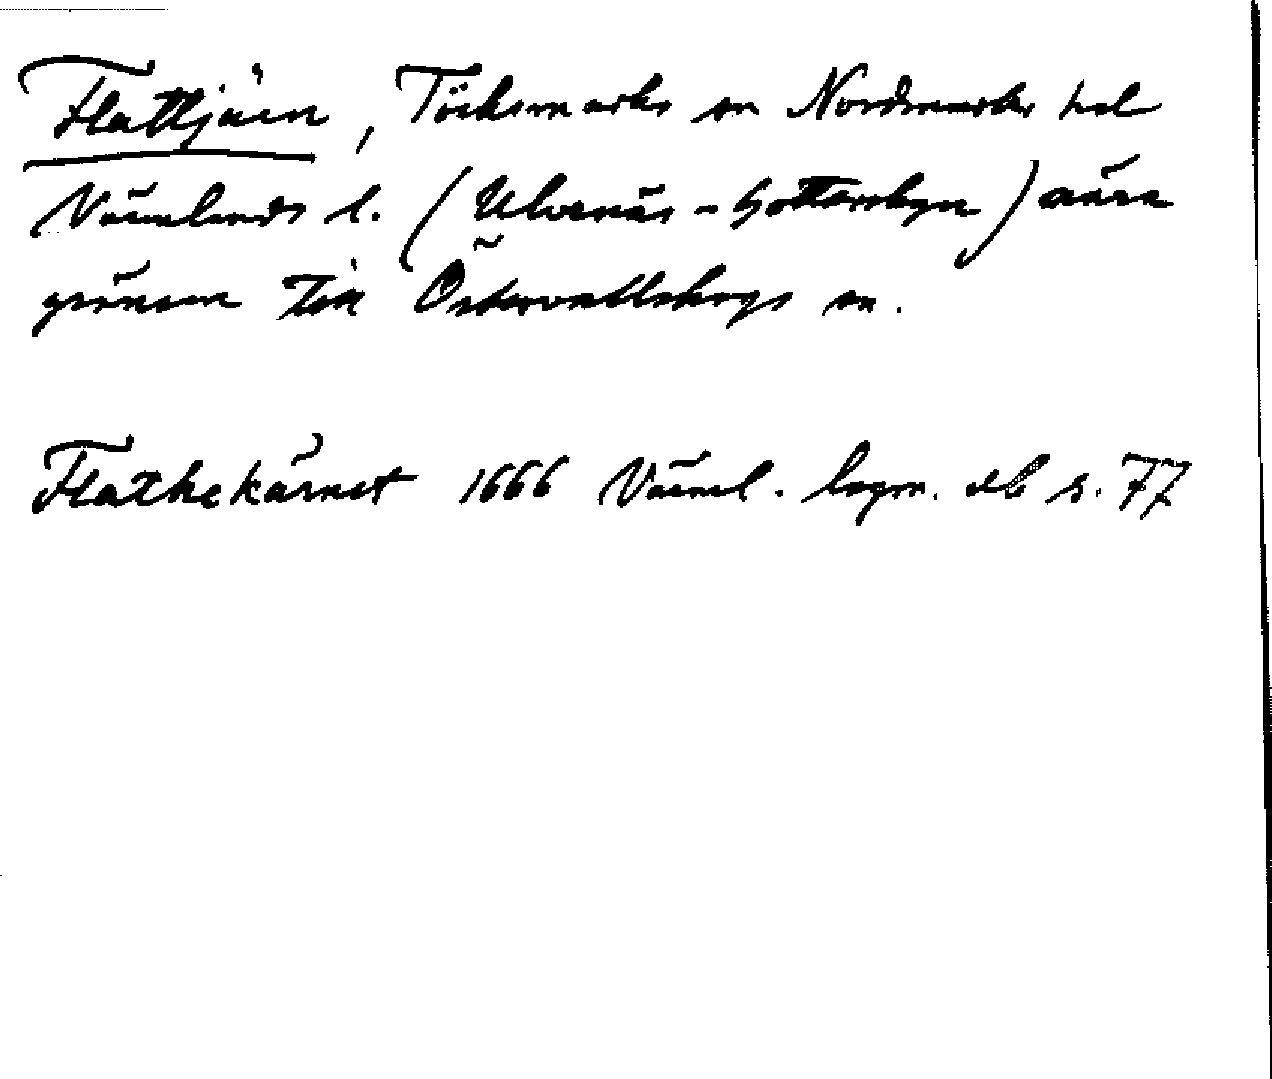 Flattjärn, Töcksmarks sn Nordmarks hd
Värmlands l. (Ulvenäs - Gottarsbyn) nära
gränsen till Östervallskogs sn.
Flathekärnet 1666 Värml. lagm. db s. 77